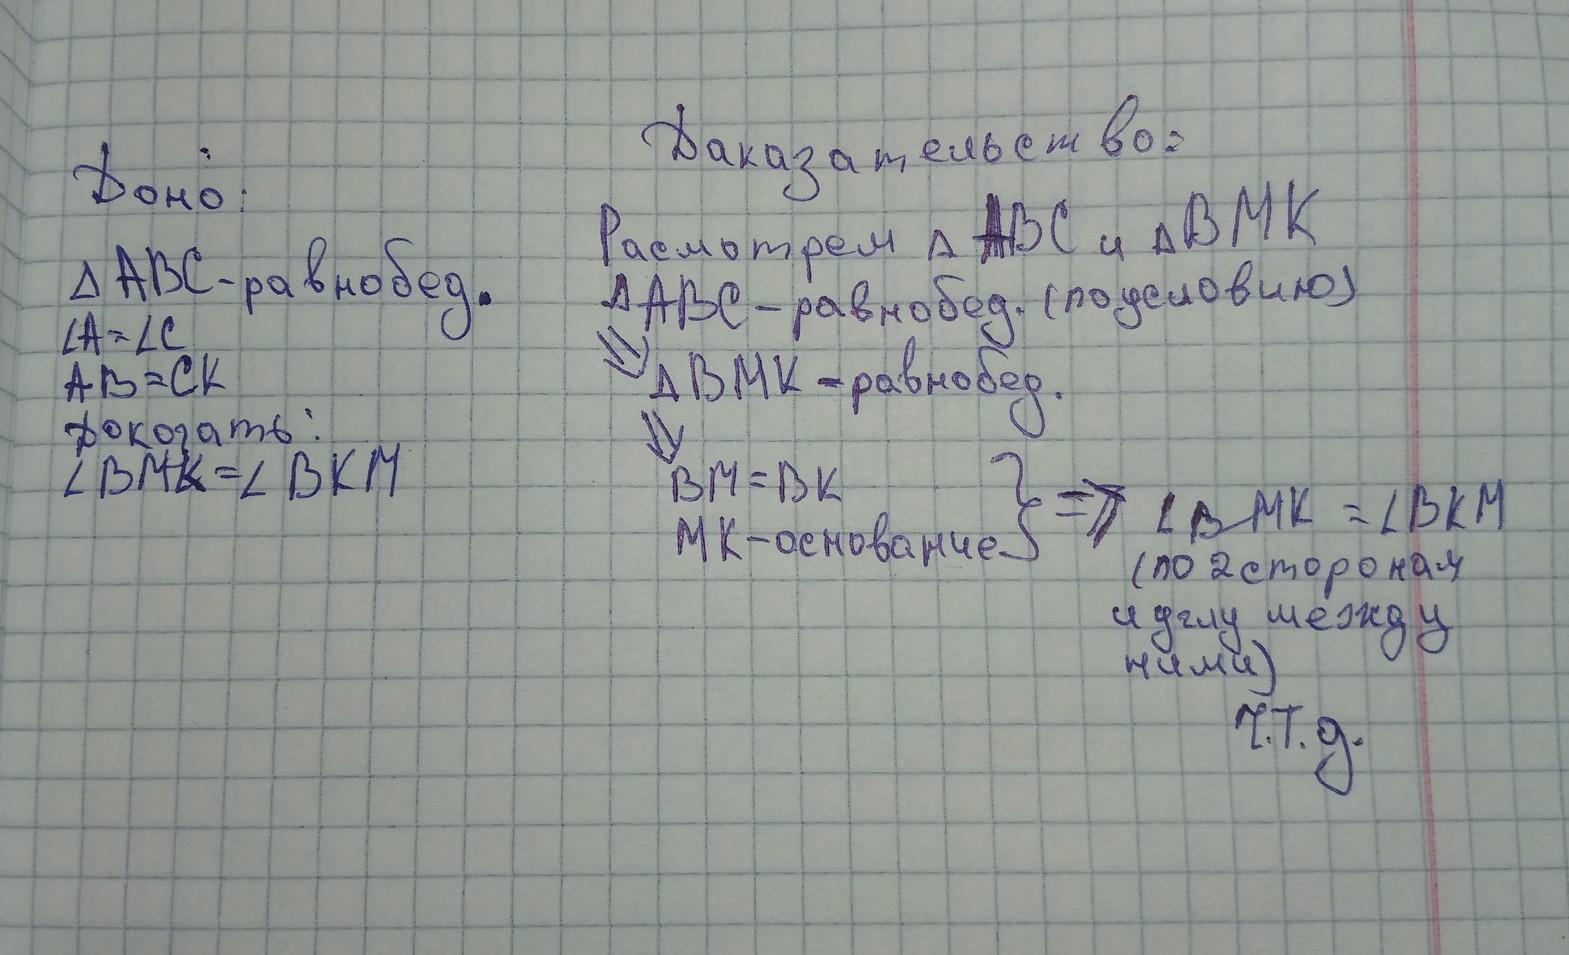 Доно:
∆ABC-равнобед.
∠A=∠C
AB=CK
Докозать:
∠BMK=∠BKM
Даказательство:
Расмотрем ∆ABC и ∆BMK
∆ABC-равнобед. (по условию)
⇓
∆BMK-равнобед.
⇓
BM=BK
MK-основание } => ∠BMK=∠BKM
(по 2 сторонам
и углу между
ними)
Ч.Т.д.